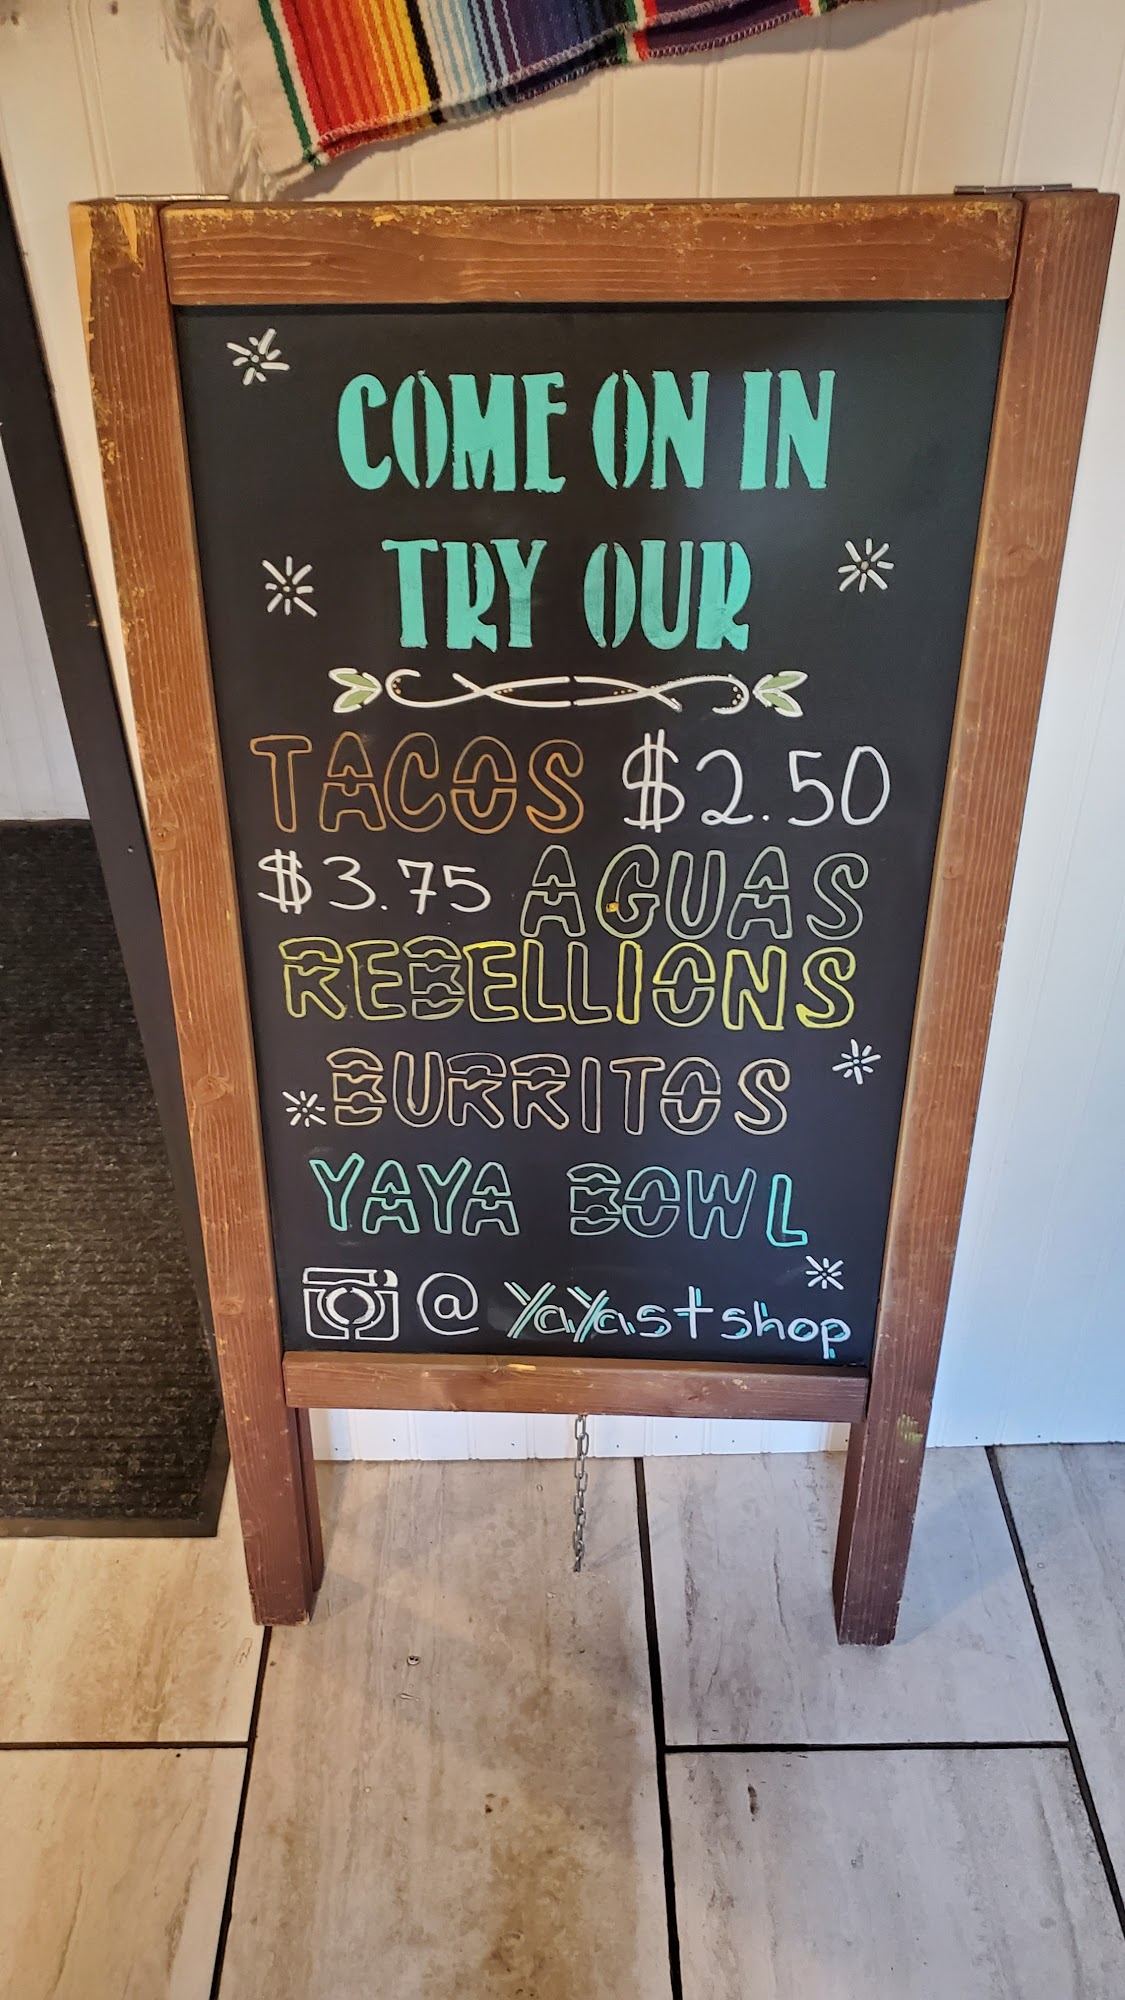 COME ON IN
TRY OUR
TACOS $2.50
$3.75 AGUAS
REBELLIONS
BURRITOS
YAYA BOWL
@ YaYastshop